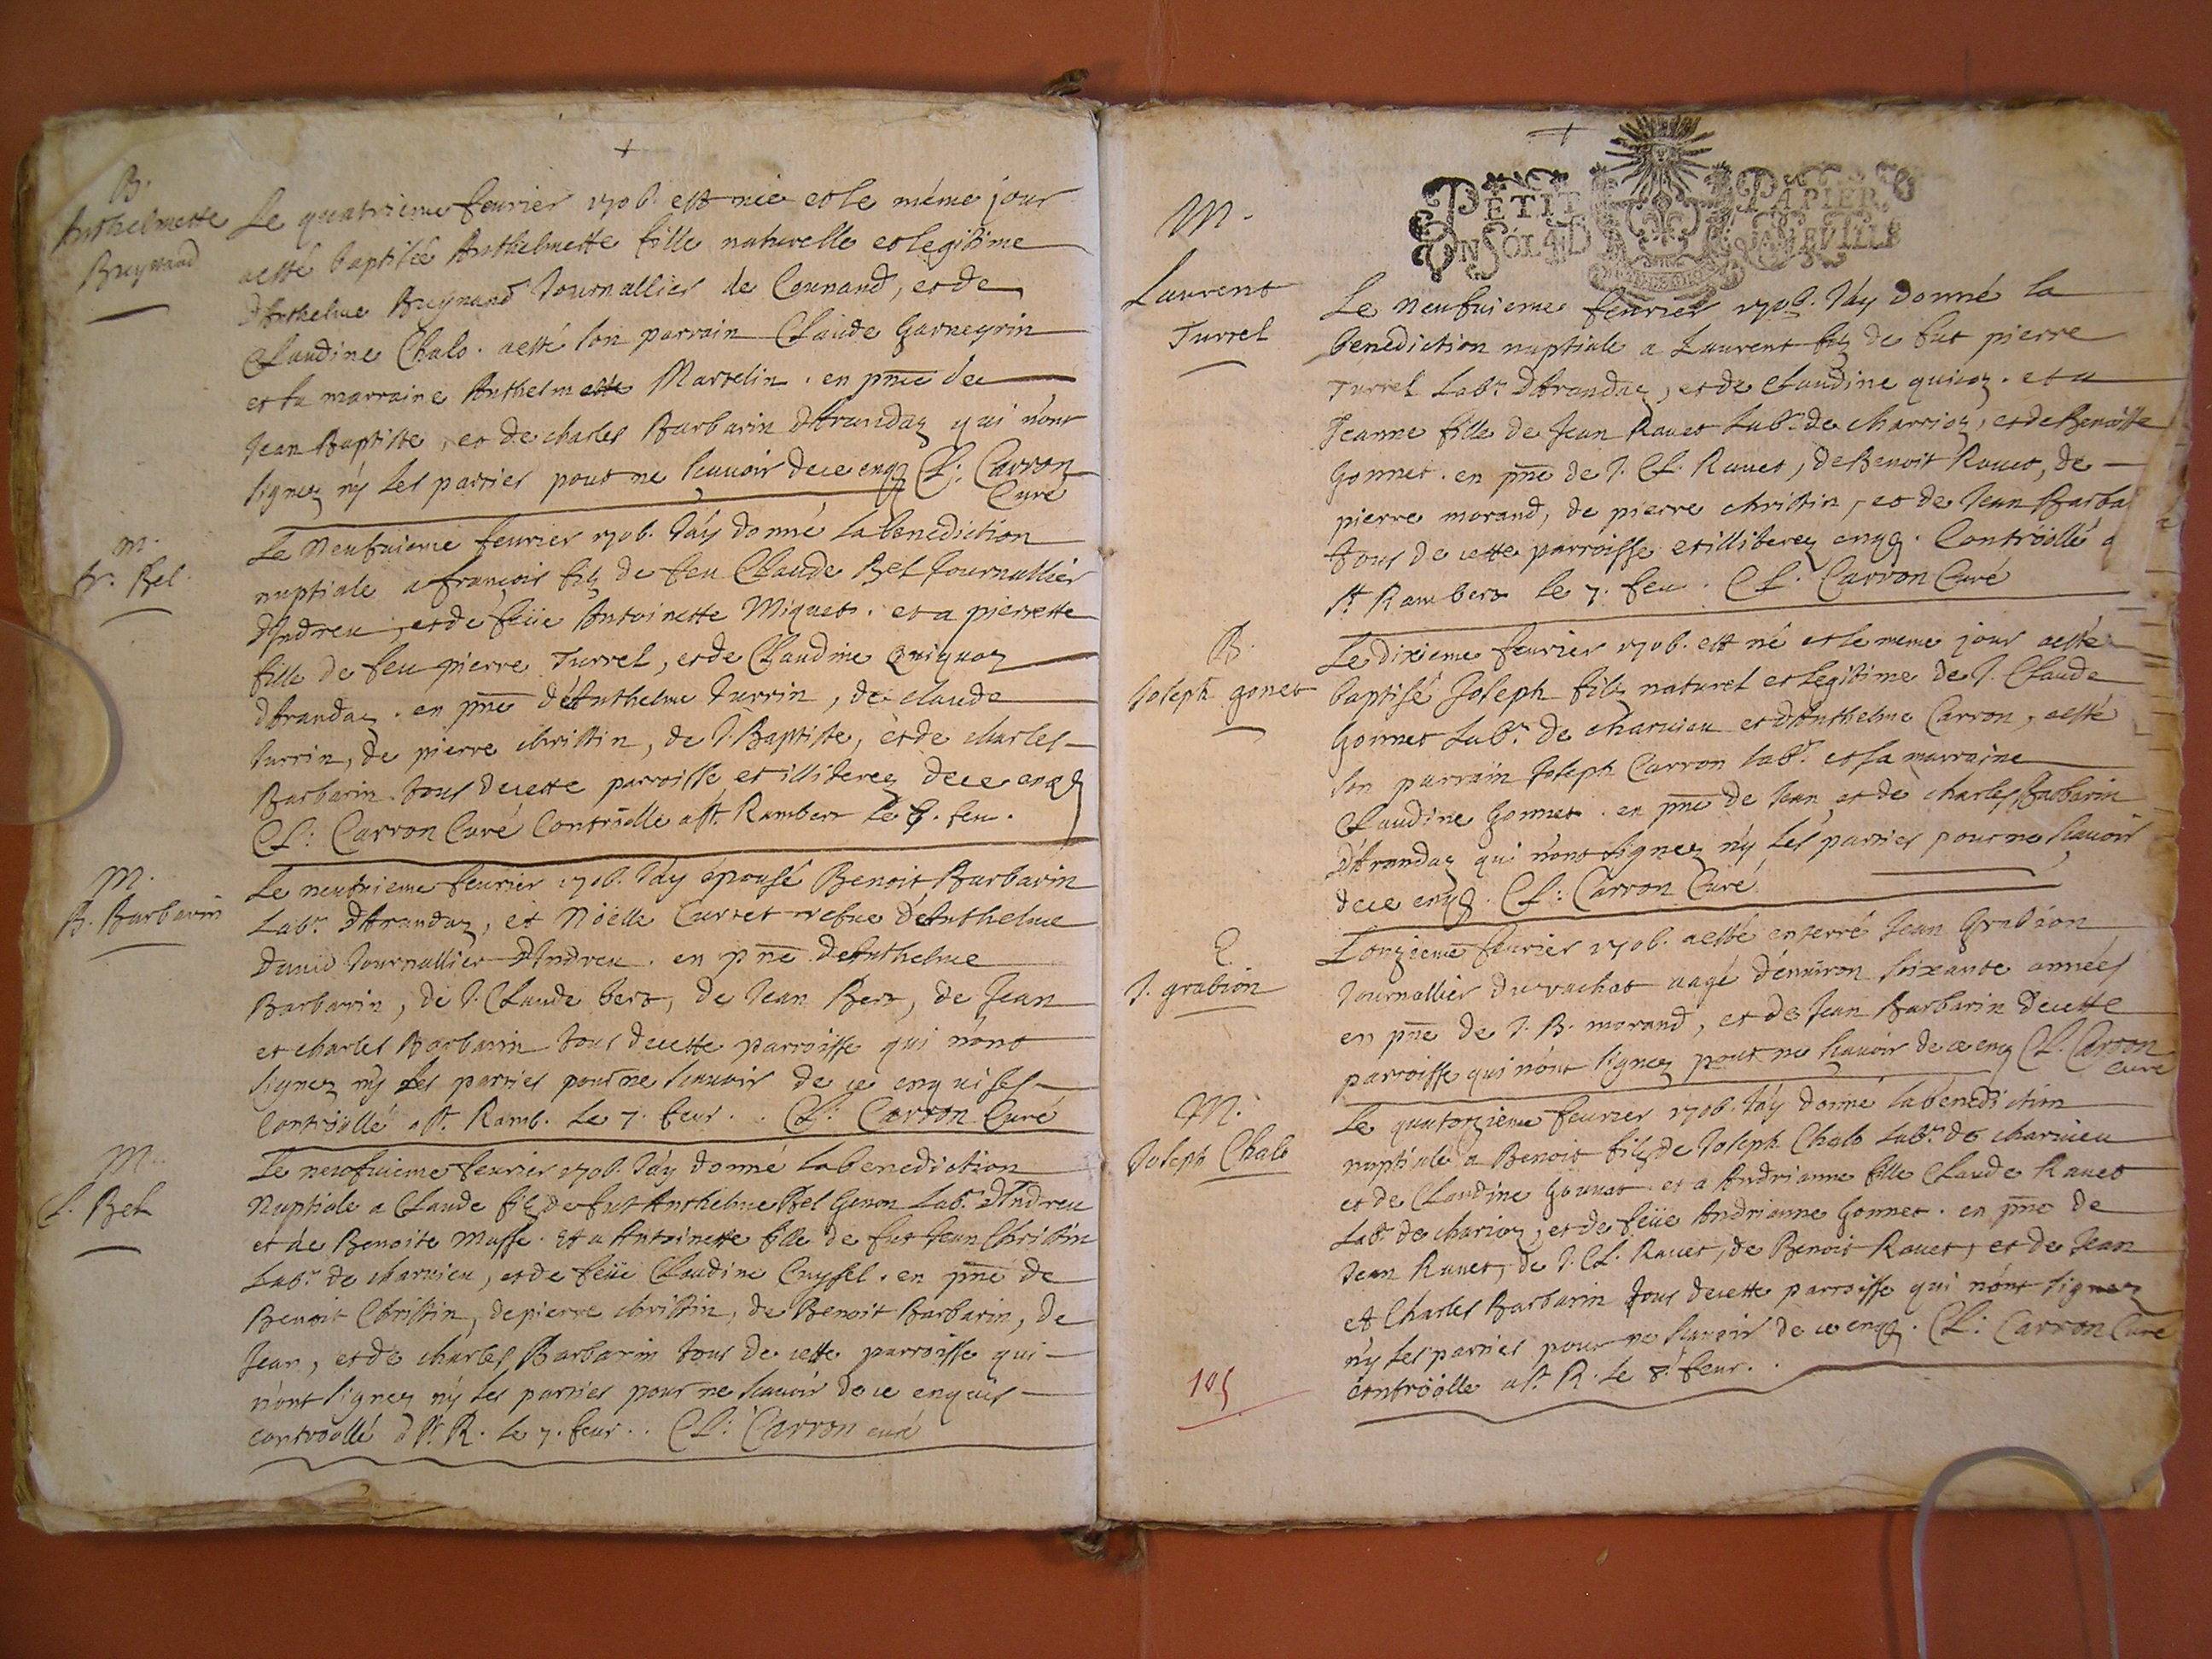 +
B.
Anthelmette
Breynand
Le quatrieme feurier 1706. est née et le même jour
aesté baptisée Anthelmette fille naturelle et legitime
d'Anthelme Breynand Journallier de Counand, et de
Claudine Chalo. aesté son parrain Claude Garneyrin
et sa marraine Anthelmette Martelin. en pnce de
Jean Baptiste, et de charles Barbarin d'Arandaz qui n'ont
signez n'y les parties pour ne scauoir de ce enqz Cl: Carron
Curé
M.
fr. Bel.
Le Neufuieme feurier 1706. J'ay donné la benediction
nuptiale a françois filz de feu Claude Bel Journallier
d'Indreu, et de feüe Antoinette Miquet. et a pierrette
fille de feu pierre Turrel, et de Claudine Quiquoz
d'Arandaz. en pnce d'Anthelme Jurrin, de claude
Jurrin, de pierre christin, de J. Baptiste, et de charles
Barbarin tous de cette parroisse et illiterez de ce enqz
Cl: Carron Curé Contröllé a St. Rambert le 7. feu.
M.
B. Barbarin
Le neufuieme feurier 1706. J'ay épousé Benoit Barbarin
Labr. d'Arandaz, et Nöelle Curtet vefue d'Anthelme
Dauid Journallier d'Indreu. en pnce d'Anthelme
Barbarin, de J. Claude bert, de Jean Bert, de Jean
et charles Barbarin tous de cette parroisse qui n'ont
signez n'y les parties pour ne scauoir de ce enquises
Contröllé a St. Ramb. le 7. feur.. Cl: Carron Curé
M.
C. Bel
Le neufuieme feurier 1706. J'ay donné la benediction
Nuptiale a Claude filz de fut Anthelme Bel Genon Labr. d'Indreu
et de Benoite Masse. Et a Antoinette fille de fut Jean Christin
Labr. de charuieu, et de feüe Claudine Cuyset. en pnce de
Benoit Christin, de pierre christin, de Benoit Barbarin, de
Jean, et de charles Barbarin tous de cette parroisse qui
n'ont signez n'y les parties pour ne scauoir de ce enquis
controollé a St. R. le 7. feur.. Cl: Carron curé
+
PETIT PAPIER
UN SOL 4 D LA FEVILLE
M.
Laurent
Turrel
Le Neufuieme feurier 1706. J'ay donné la
benediction nuptiale a Laurent filz de fut pierre
Turrel Labr. d'Arandaz, et de Claudine quicoz. et a
Jeanne fille de Jean Rauet Labr. de charrioz, et de Benoitte
Gonnet. en pnce de J. Cl. Rauet, de Benoit Rauet, de
pierre morand, de pierre christin, et de Jean Barba
tous de cette parroisse et illiterez enqz. Contröollé a
St Rambert le 7. feu. Cl. Carron Curé
B.
Joseph gonet
Le dixieme feurier 1706. est né et le meme jour aesté
baptisé Joseph filz naturel et legitime de J. Claude
Gonnet Labr. de charuieu et d'Anthelme Carron, aesté
son parrain Joseph Carron labr. et sa marraine
Claudine Gonnet. en pnce de Jean et de charles Barbarin
d'Arandaz qui n'ont signez n'y les parties pour ne scauoir
de ce enqz. Cl: Carron Curé
E.
J. grabion
L'onzieme feurier 1706. aesté enterré Jean Grabion
Journallier du vachat aagé d'enuiron soixante années
en pnce de J. B. morand, et de Jean Barbarin de cette
parroisse qui n'ont signez pour ne scauoir de ce enq Cl. Carron
curé
M.
Joseph Chalo
Le quatorzieme feurier 1706. J'ay donné la benediction
nuptiale a Benoit filz de Joseph Chalo Labr. de charuieu
et de Claudine Gounat. et a Andrianne fille Claude Rauet
Labr. de charioz, et de feüe Andrianne Gonnet. en pnce de
Jean Rauet, de J. Cl. Rauet, de Benoit Rauet, et de Jean
et Charles Barbarin tous de cette parroisse qui n'ont signez
n'y les parties pour ne scauoir de ce enqz. Cl: Carron Curé
contröolle a St. R. le 8. feur..
105